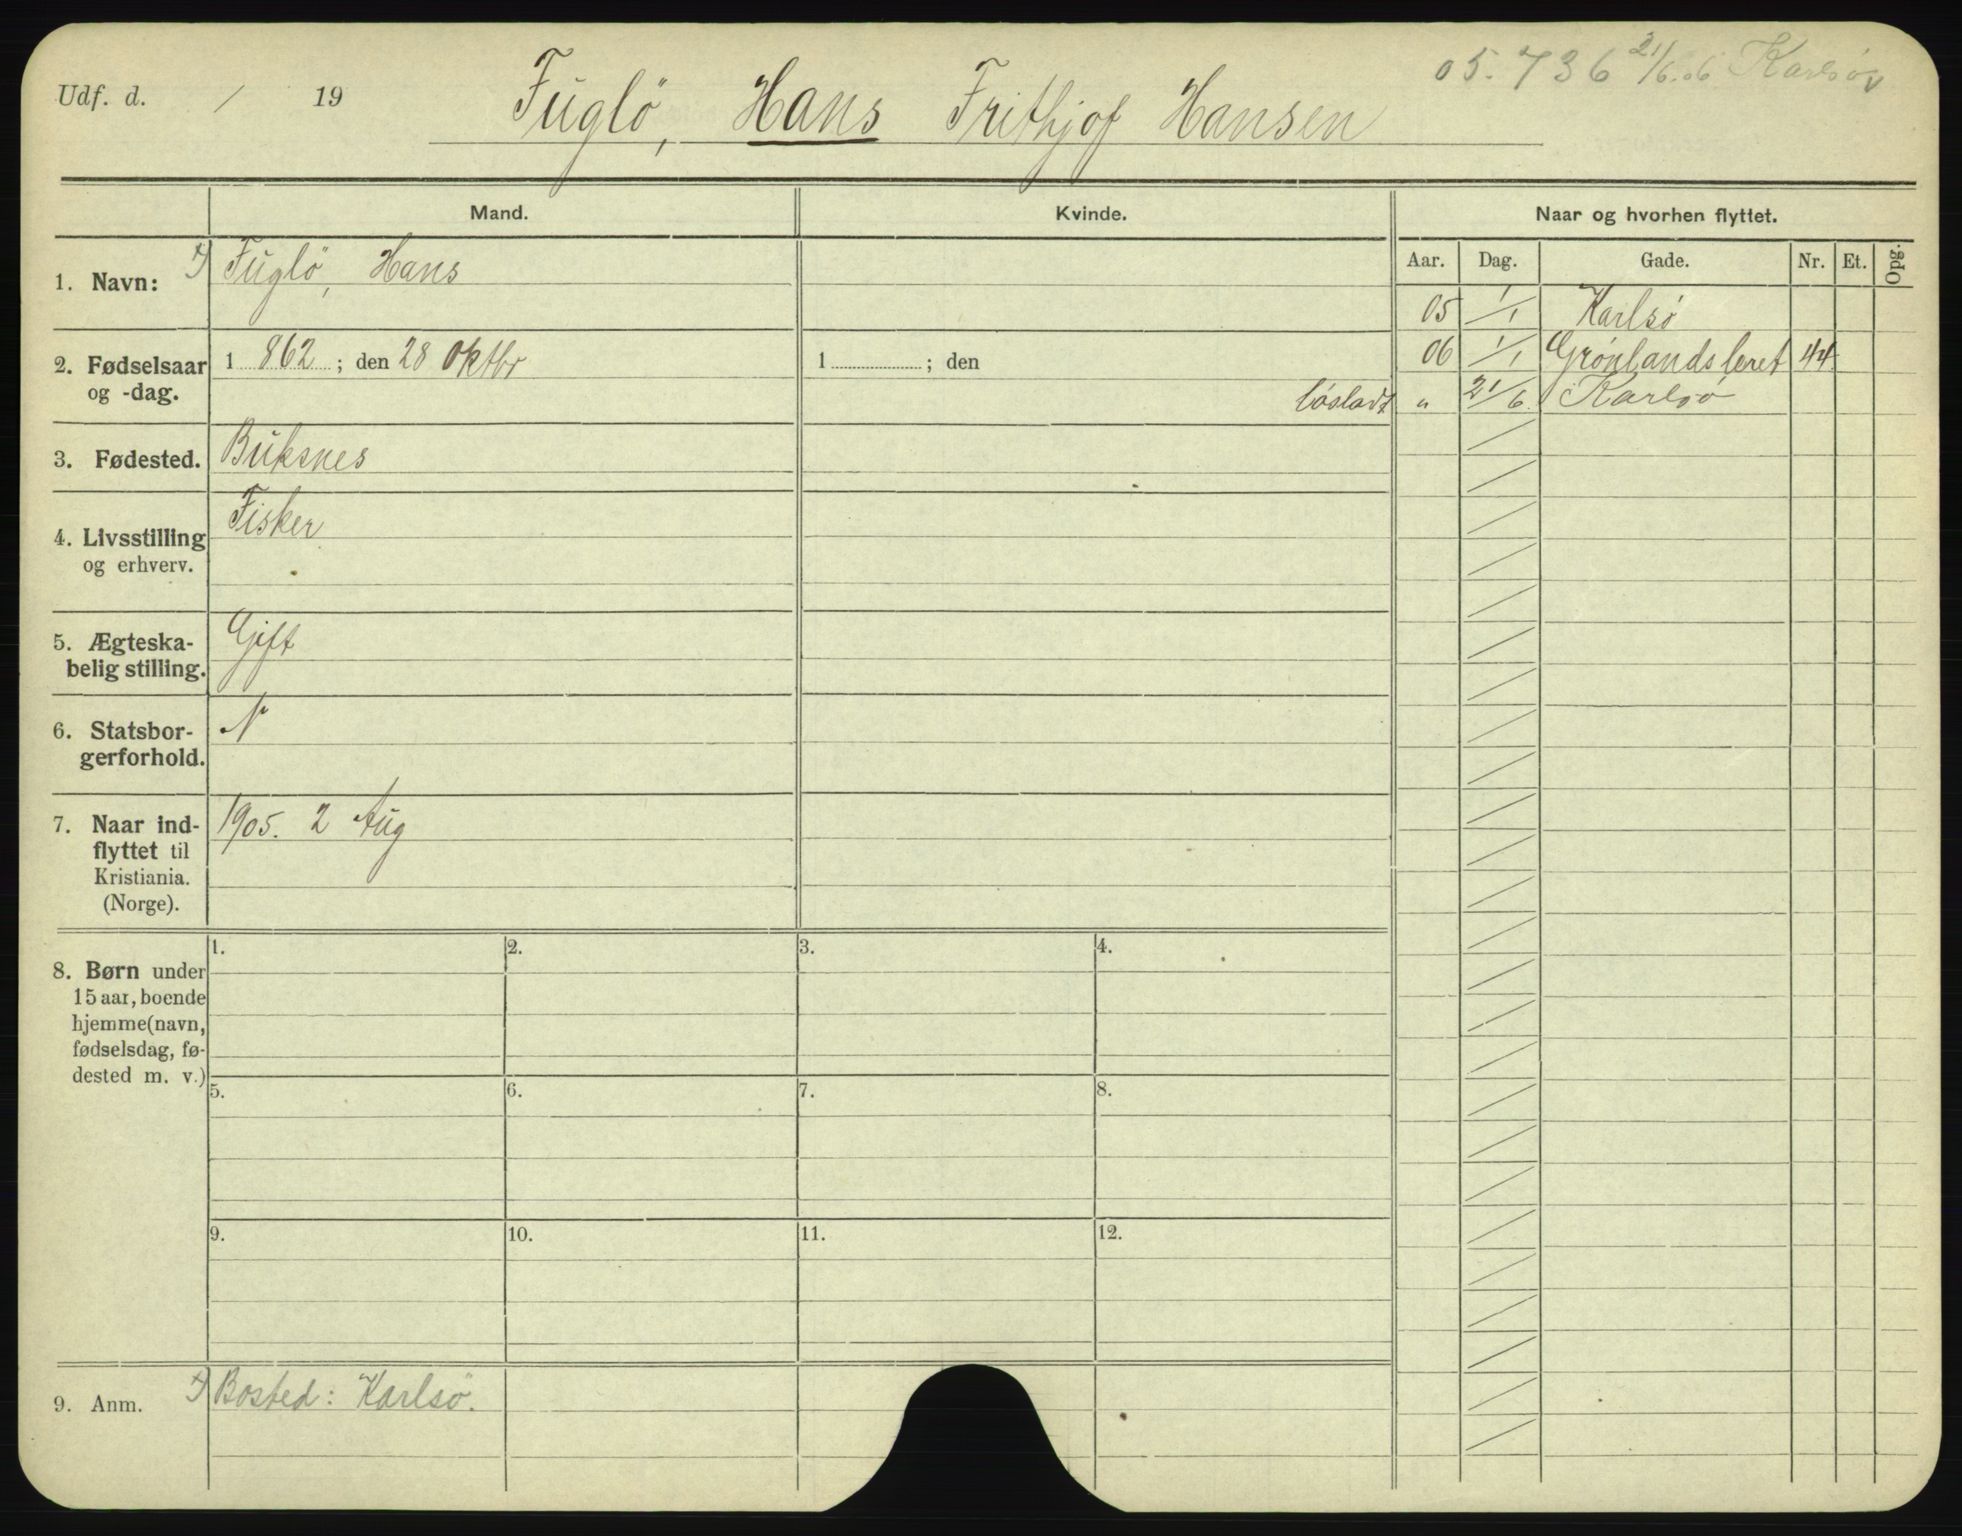 05.736 21/6.06 Karlsöv
Udf. d. / 19 Fuglö, Hans Frithjof Hansen
Mand. Kvinde. Naar og hvorhen flyttet.
Aar. Dag. Gade. Nr. Et. Opg.
1. Navn: Fuglö, Hans
05 1/1 Karlsö
2. Fødselsaar og -dag. 1 862 ; den 28 Oktbr 1 ; den
06 1/1 Grönlandsleret 44
løsladt „ 21/6 Karlsö
3. Fødested. Buksnes
4. Livsstilling og erhverv. Fisker
5. Ægteska-
belig stilling. Gift
6. Statsbor-
gerforhold. N
7. Naar ind-
flyttet til
Kristiania.
(Norge). 1905. 2 Aug
8. Børn under
15 aar, boende
hjemme (navn,
fødselsdag, fø-
dested m. v.)
1. 2. 3. 4.
5. 6. 7. 8.
9. 10. 11. 12.
9. Anm. Bosted: Karlsö.